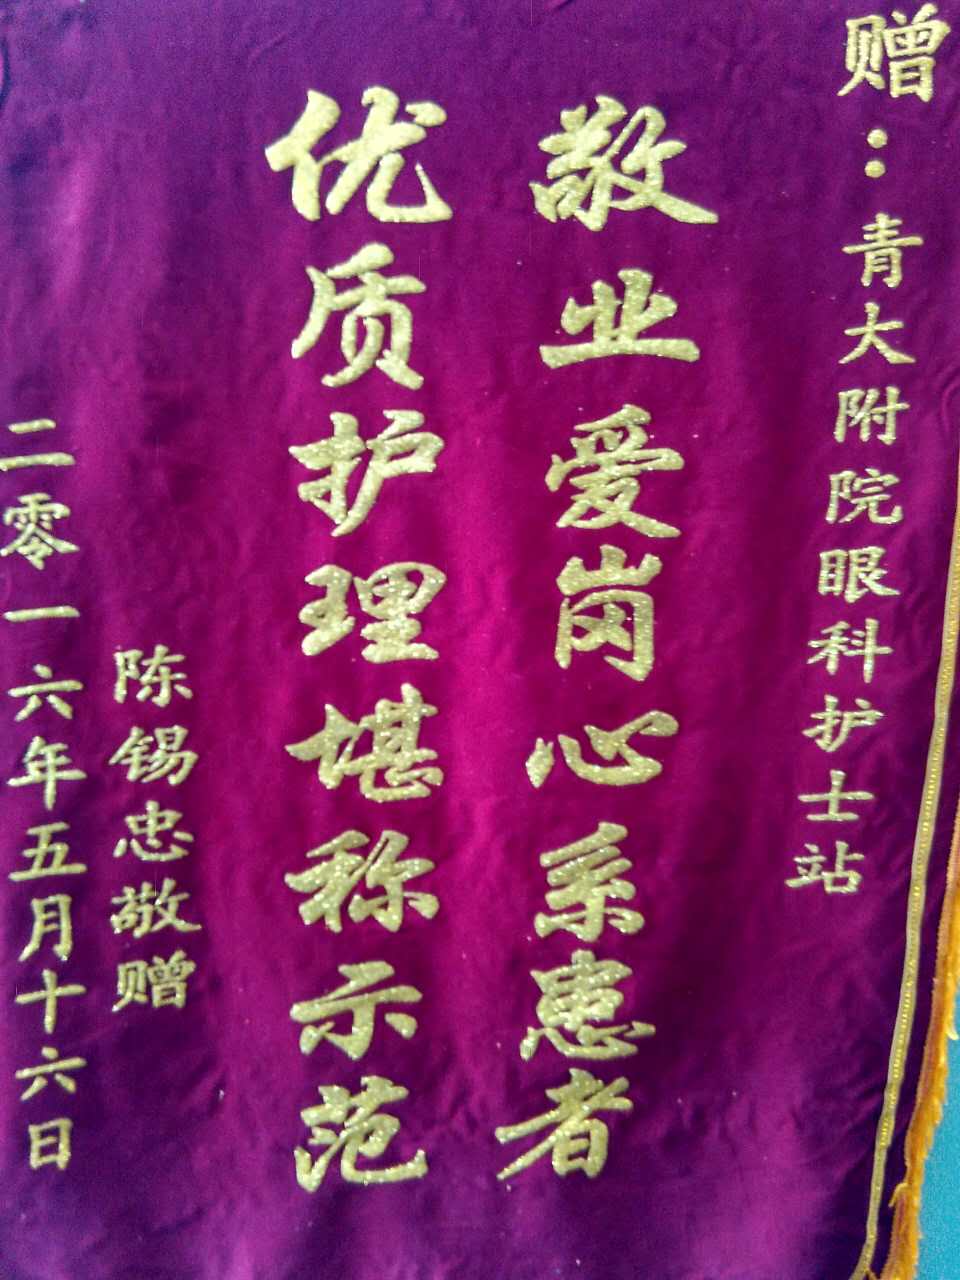 赠：青大附院眼科护士站
敬业爱岗心系患者
优质护理堪称示范
陈锡忠敬赠
二零一六年五月十六日